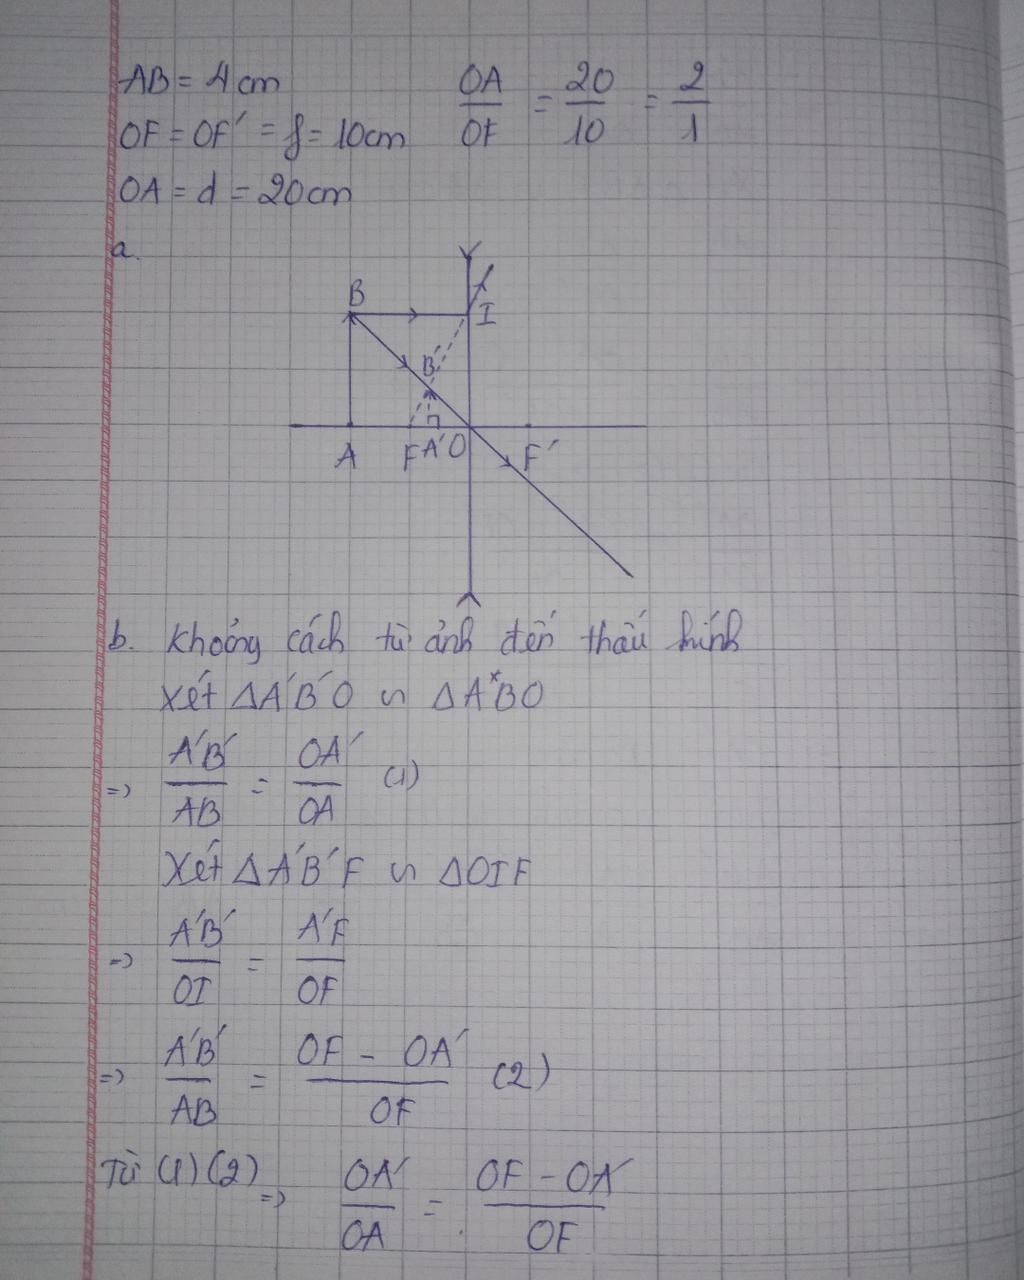 AB = 4 cm
OA/OF = 20/10 = 2/1
OF = OF' = f = 10cm
OA = d = 20cm
a.
B
I
B'
A
F
A'
O
F'
b. Khoảng cách từ ảnh đến thấu kính
Xét ΔA'B'O ∽ ΔABO
=> A'B'/AB = OA'/OA (1)
Xét ΔA'B'F ∽ ΔOIF
=> A'B'/OI = A'F/OF
=> A'B'/AB = OF - OA'/OF (2)
Từ (1)(2) => OA'/OA = OF - OA'/OF